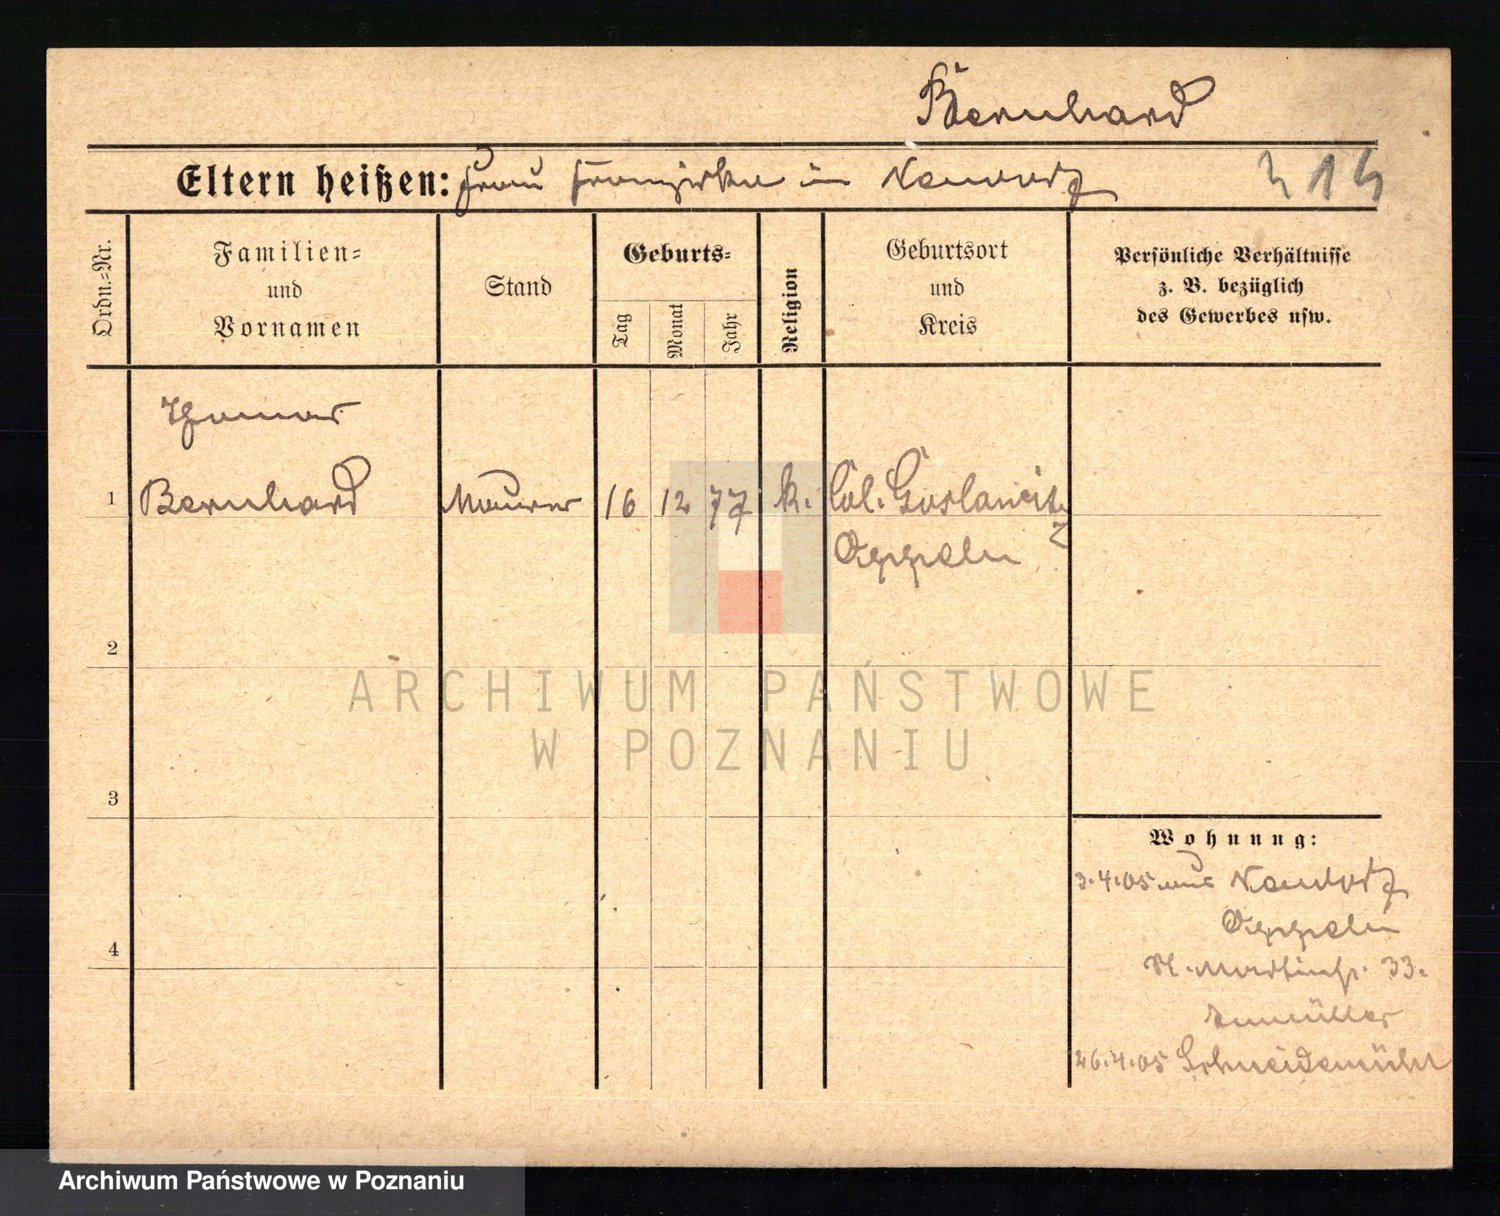 Bernhard
Eltern heißen: Frau Franziska in
314
Ordn.=Nr.
Familien=
und
Vornamen
Stand
Geburts=
Tag
Monat
Jahr
Religion
Geburtsort
und
Kreis
Persönliche Verhältnisse
z. B. bezüglich
des Gewerbes usw.
Thomas
1 Bernhard Maurer 16 12 77 k. Col. Goslawitz
Oppeln
2
ARCHIWUM PAŃSTWOWE
W POZNANIU
3
Wohnung:
3.4.05 aus
Oppeln
St. Martinstr. 33.
4
26.4.05 Schneidemühl
Archiwum Państwowe w Poznaniu